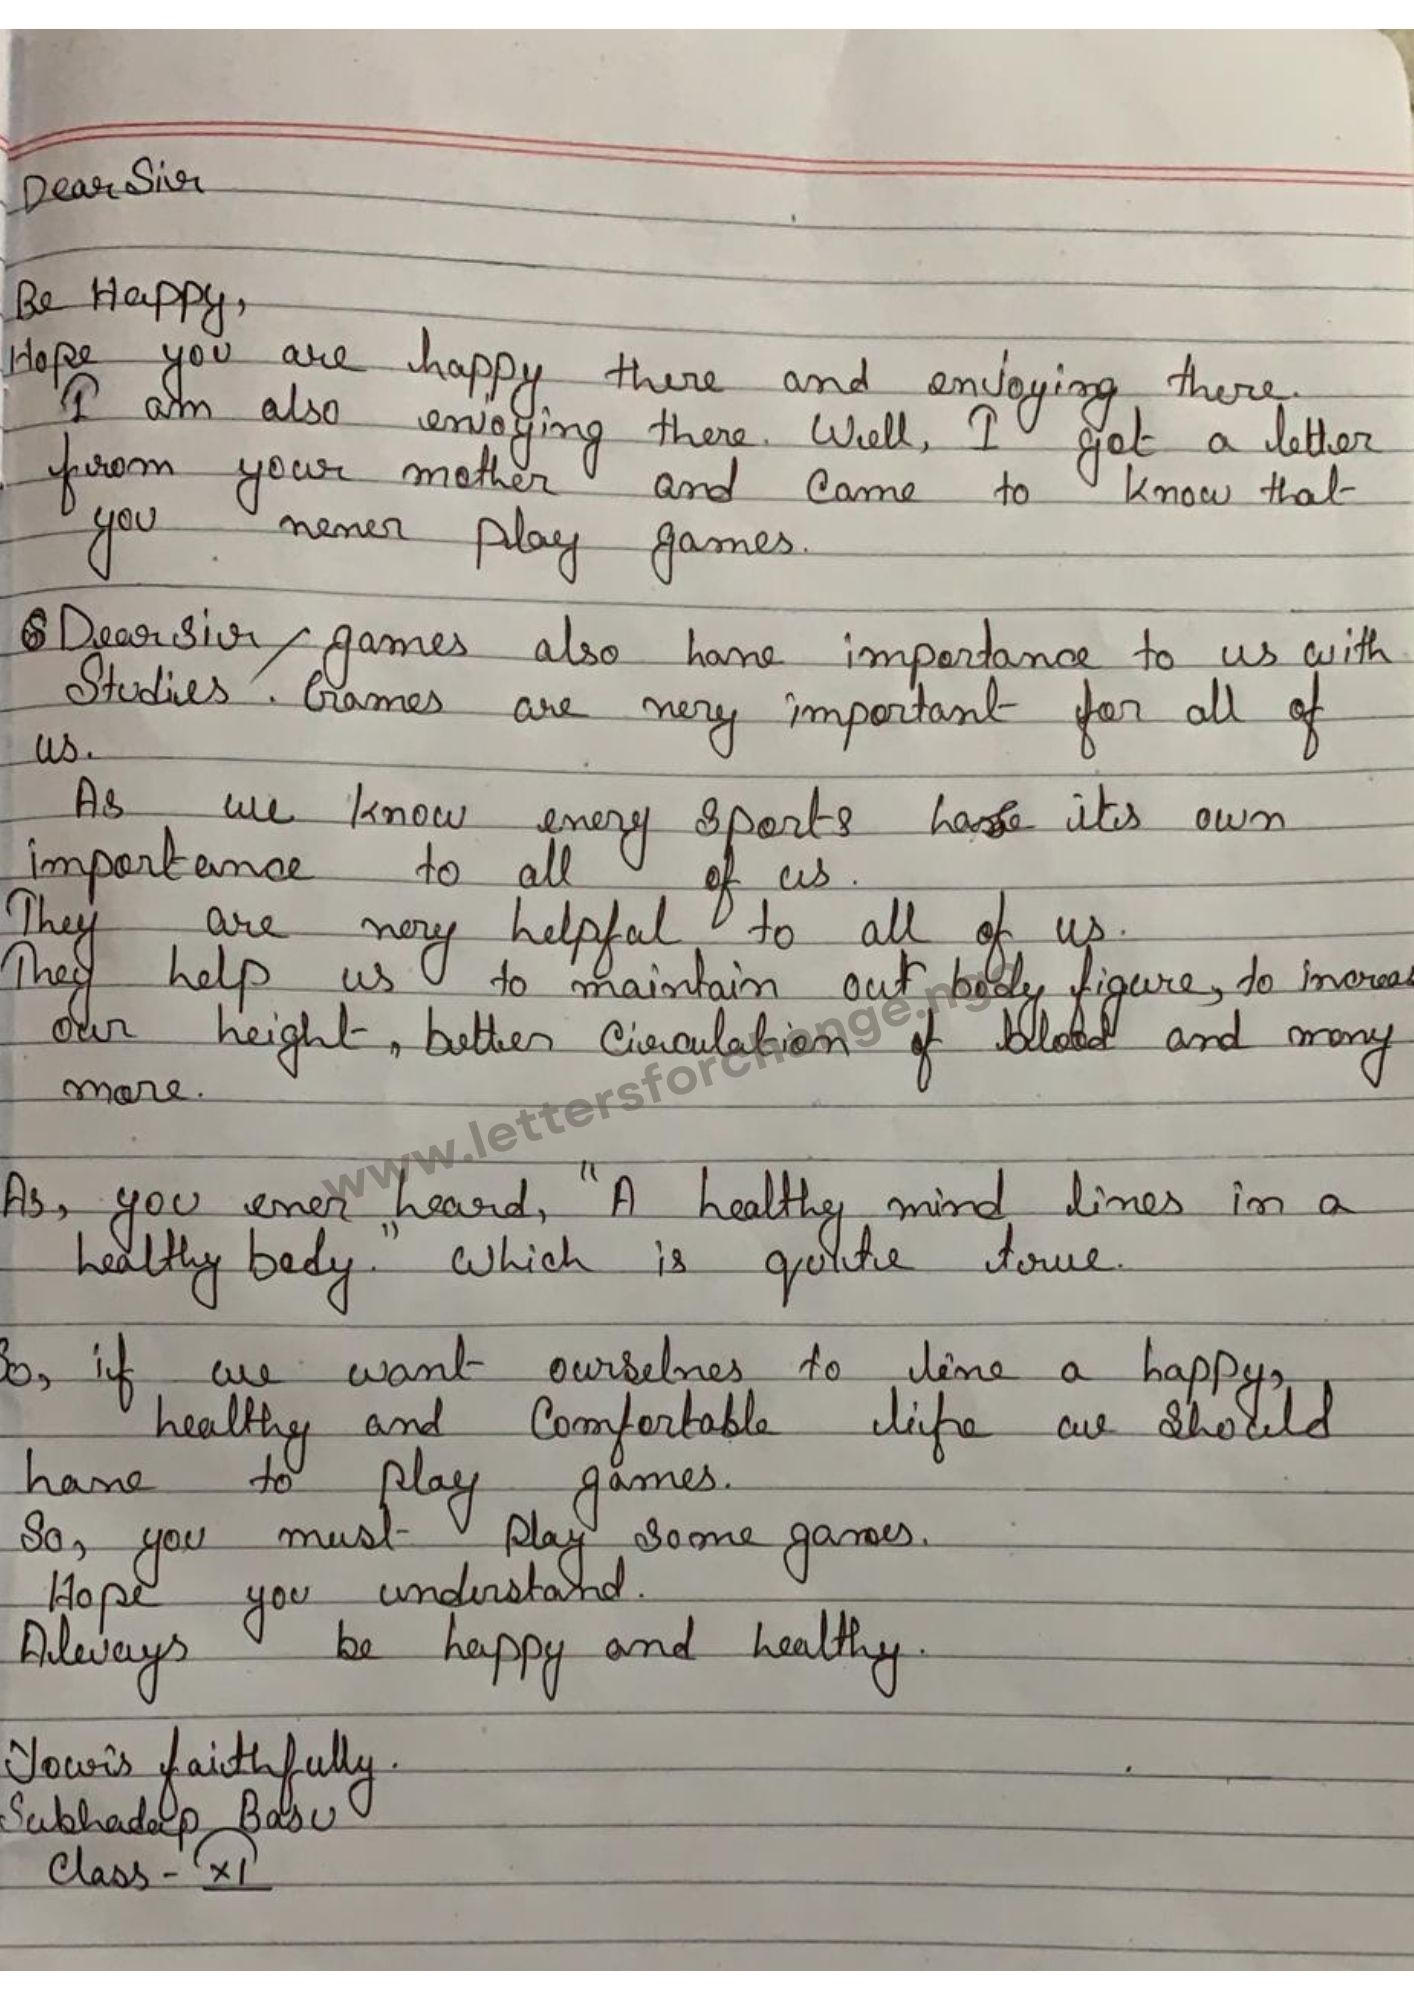 Dear Sir
Be Happy,
Hope you are happy there and enjoying there.
I am also enjoying there. Well, I got a letter
from your mother and came to know that
you never play games.
Dear sir, games also have importance to us with
Studies. Games are very important for all of
us.
As we know every sports has its own
importance to all of us.
They are very helpful to all of us.
They help us to maintain out body figure, to increas
our height, better circulation of blood and many
more.
www.lettersforchange.ngo
As, you ever heard, "A healthy mind lives in a
healthy body." which is quite true.
So, if we want ourselves to live a happy,
healthy and comfortable life we should
have to play games.
So, you must play some games.
Hope you understand.
Always be happy and healthy.
Yours faithfully.
Subhadeep Basu
Class - XI